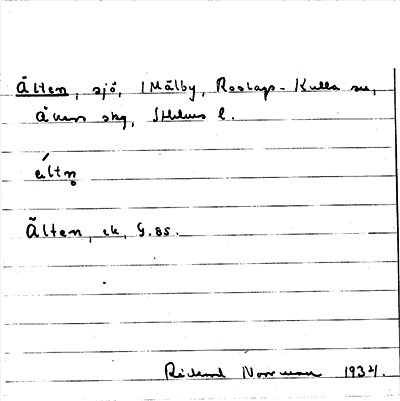 Älten, sjö, i Mälby, Roslags-Kulla sn,
Åkers skg, Sthlms l.
ältn̥
Älten, ek, G.BS.
Rickard Norrman 1934.